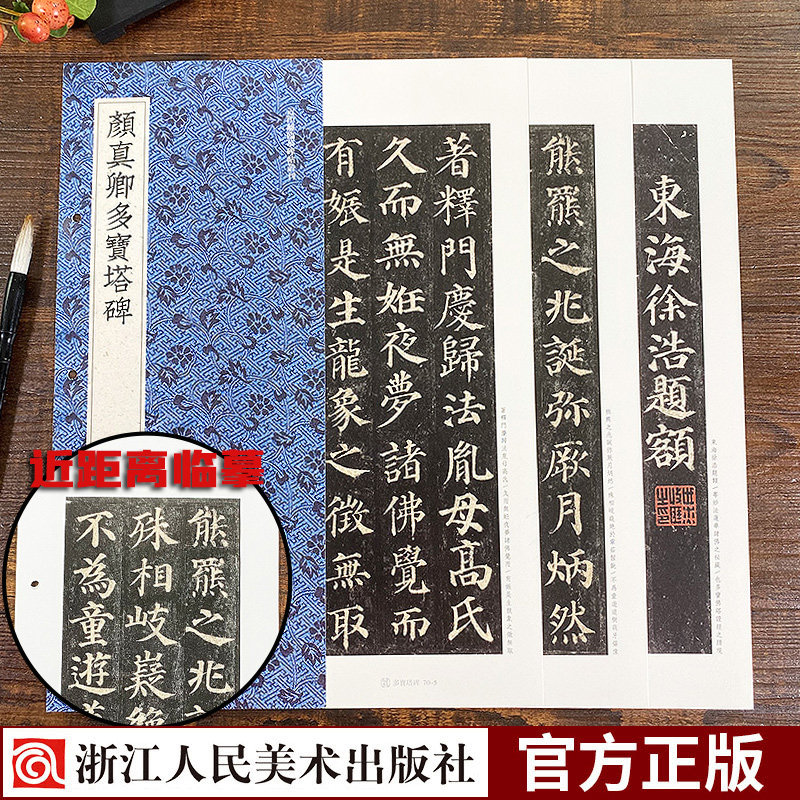 顏真卿多寶塔碑
東海徐浩題額
熊羆之兆誕弥厥月炳然
著釋門慶歸法胤母高氏
久而無姙夜夢諸佛覺而
有娠是生龍象之徵無取
多寶塔碑 70-5
近距离临摹
熊羆之兆
殊相岐嶷絕
不為童遊
浙江人民美术出版社
官方正版